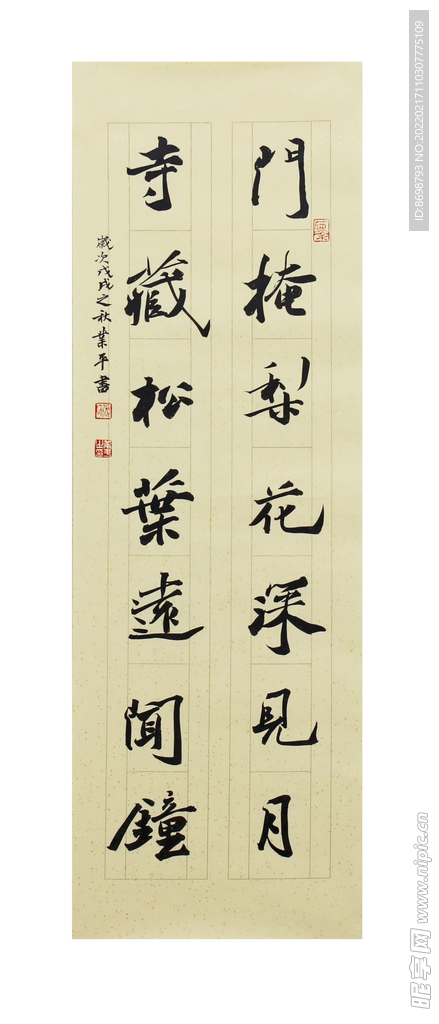 門掩梨花深見月
寺藏松葉遠聞鐘
歲次戊戌之秋業平書
NO:20220217110307775109
ID:8698793
昵享网 www.nipic.cn